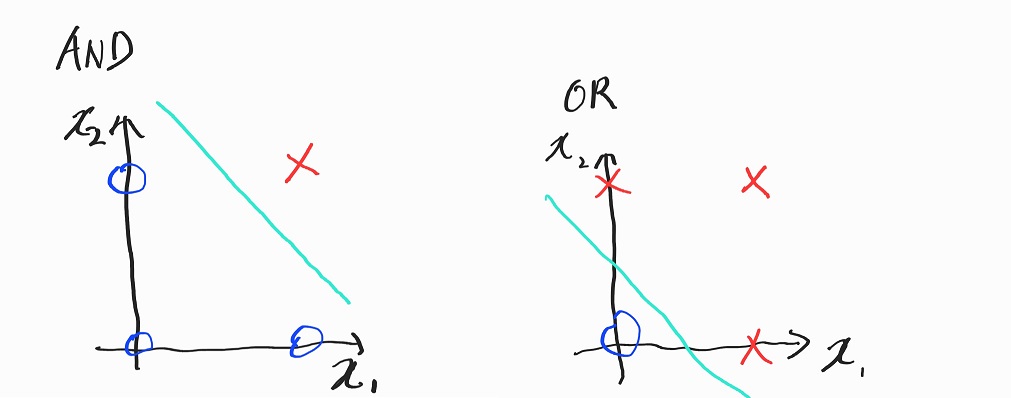 AND
x₂
x₁
OR
x₂
x₁